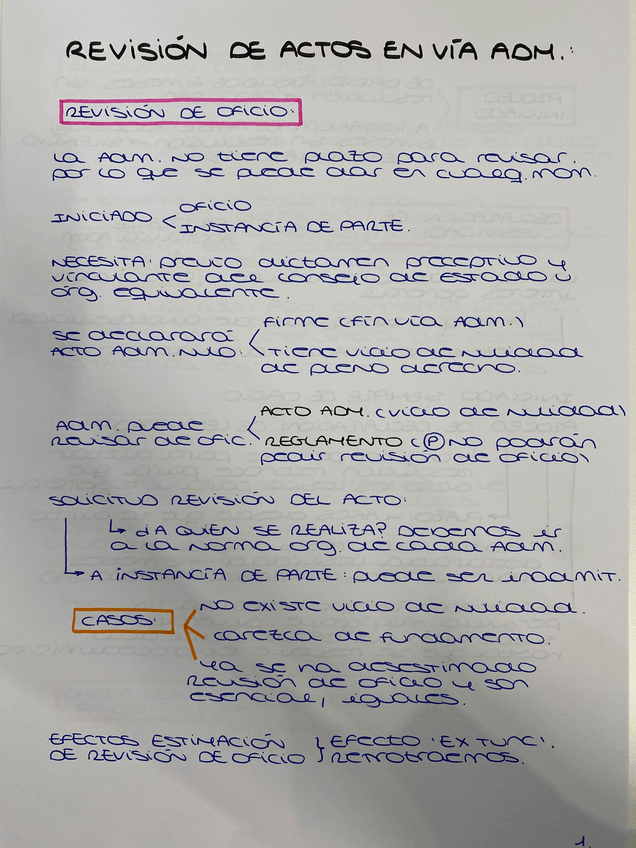 REVISIÓN DE ACTOS EN VÍA ADM.:
REVISIÓN DE OFICIO:
La Adm. NO tiene plazo para revisar,
por lo que se puede dar en cualq. mom.
INICIADO < OFICIO
INSTANCIA DE PARTE.
NECESITA: previo dictamen preceptivo y
vinculante del consejo de Estado u
órg. equivalente.
se declarará
ACTO ADM. NULO:
Firme (Fin vía Adm.)
Tiene vicio de nulidad
de pleno derecho.
Adm. puede
revisar de ofic.
ACTO ADM. (vicio de nulidad)
REGLAMENTO (P NO podrán
pedir revisión de oficio)
SOLICITUD REVISIÓN DEL ACTO:
↳ ¿A QUIÉN SE REALIZA? DEBEMOS ir
a la norma org. de cada Adm.
→ A INSTANCIA DE PARTE: puede ser inadmit.
CASOS:
NO existe vicio de nulidad.
carezca de fundamento.
ya se ha desestimado
revisión de oficio y son
esencial, iguales.
EFECTOS ESTIMACIÓN
DE REVISIÓN DE OFICIO
} EFECTO 'EX TUNC'.
RETROTRAEMOS.
1.